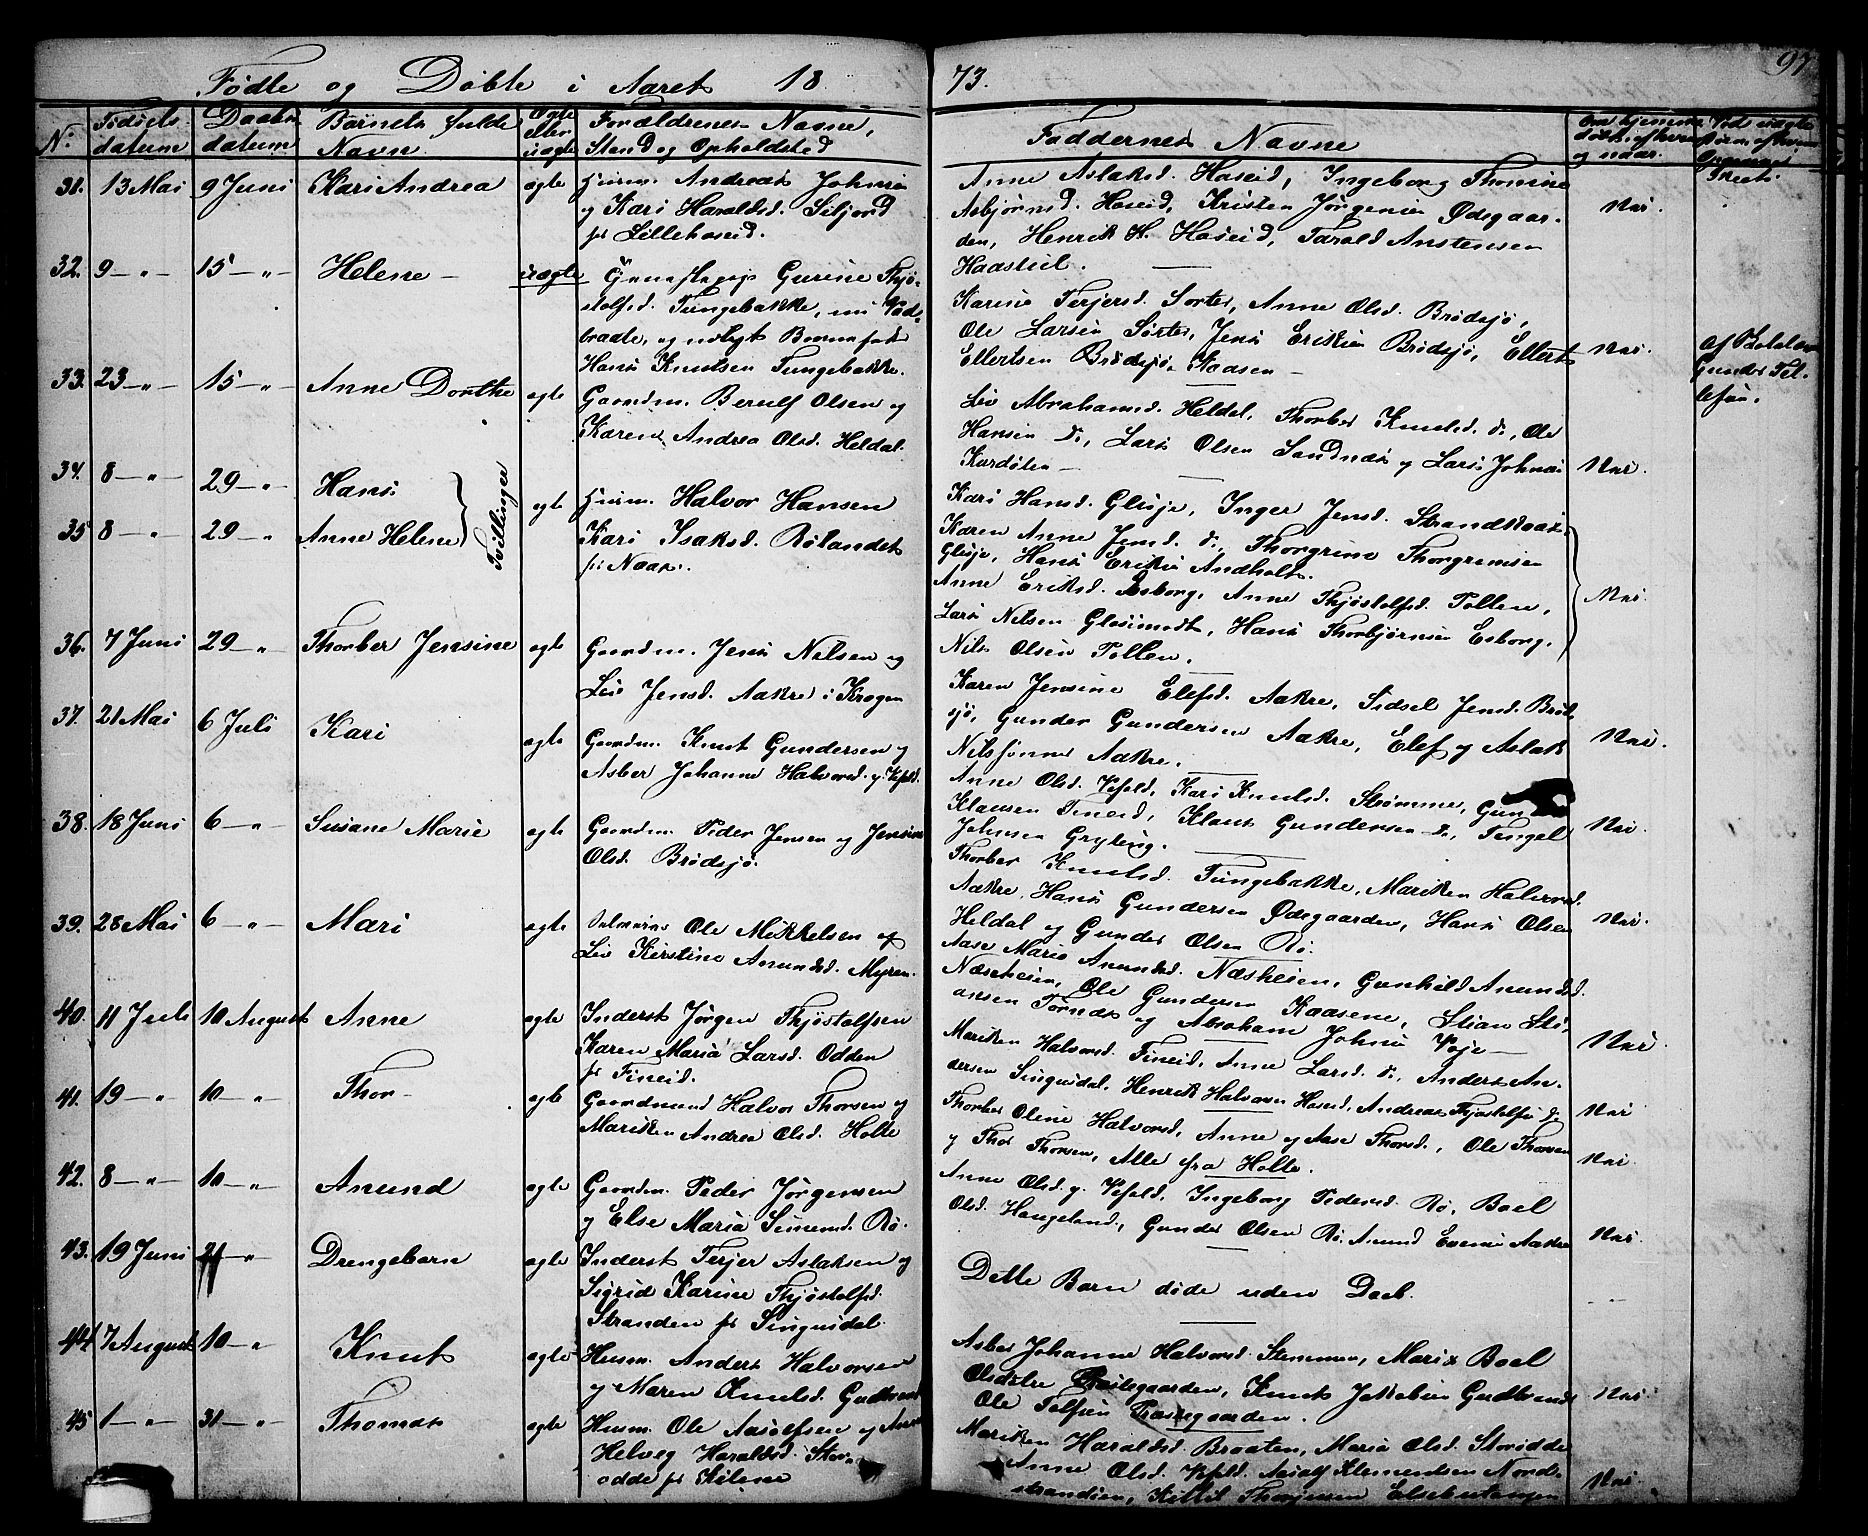 Fødte og Døbte i Aaret 18
73.
97
No.
Fødsels datum
Daabs datum
Barnets fulde Navn
Ægte eller uægte
Forældrenes Navne, Stand og Opholdsted
Faddernes Navne
31. 13 Mai 9 Juni Kari Andrea ægte Huusm. Andreas Johnsen
og Kari Haraldsd. Siljord
fr Lillehaseid.
Anne Aslaksd. Haseid, Ingeborg Thomine
Asbjørnsd. Haseid, Kristen Jørgensen Ødegaar-
den, Henrik H. Haseid, Tarald Anstensen
Haastul.
Nei.
32. 9 — " — 15 — " — Helene — uægte Gurine Thjø-
stolfsd. Tungebakke, nu
og udlagt Barnefader
Hans Knutsen Tungebakke.
Karine Terjersd. Sorter, Anne Olsd. Brødsjø,
Ole Larsen Sørter, Jens Eriksen Brødsjø, Ellert
Ellertsen Brødsjø, Kaasen —
Nei.
af
Gunder Tel-
lefsen.
33. 23 — " — 15 — " — Anne Dorthe ægte Gaardm. Berulf Olsen og
Karen Andrea Olsd. Heldal.
Liv Abrahamsd. Heldal, Thorber Knutsd. do, Ole
Hansen do, Lars Olsen Sandnæs og Lars Johnsen
Kardølen —
Nei.
34. 8 — " — 29 — " — Hans
Tvillinger
ægte Huusm. Halvor Hansen
35 8 — " — 29 — " — Anne Helene
Kari Isaksd. Rølandet
fr Naas.
Kari Hansd. Glusje, Inger Jensd. Strandkaas
Karen Anne Jensd. do, Thorgrim Thorgrimsen
Glusje, Hans Eriksen Andholt.
Anne Eriksd. Esborg, Anne Thjøstolfsd. Tollen,
Lars Nilsen Glosimodt, Hans Thorbjørnsen Esborg,
Nils Olsen Tollen.
Nei.
36. 7 Juni 29 — " — Thorber Jensine ægte Gaardm. Jens Nilsen og
Liv Jensd. Aakre i Krogen
Karen Jensine Elefsd. Aakre, Sidsel Jensd. Brød-
sjø, Gunder Gundersen Aakre, Elef og Aslak
Nilssønner Aakre.
Nei.
37. 21 Mai 6 Juli Kari ægte Gaardm. Knut Gundersen og
Asber Johanne Halvorsd. y. Vefald.
Anne Olsd. Vefald, Kari Knutsd. Strømme, Gunder
Klausen Fineid, Klaus Gundersen do, Tengel
Johnsen Gryting.
Nei.
38. 18 Juni 6 — " — Susane Marie ægte Gaardm. Peder Jensen og Jensine
Olsd. Brødsjø.
Thorber Knutsd. Tungebakke, Mariken Halvorsd.
Aakre, Hans Gundersen Ødegaarden, Hans Olsen
Heldal og Gunder Olsen Rø.
Nei.
39. 28 Mai 6 — " — Mari ægte Ole Mikkelsen og
Liv Kirstine Anundsd. Myren.
Aase Marie Anundsd. Næsheien, Gunhild Anundsd.
Næsheien, Ole Gundersen Kaasene, Stian Sti-
ansen Tørndt og Abraham Johnsen Voje —
Nei.
40. 11 Juli 10 August Anne ægte Inderst Jørgen Thjøstolfsen
Karen Maria Larsd. Odden
fr Fineid.
Mariken Halvorsd. Fineid, Anne Larsd. do, Anders An-
dersen Singusdal, Henrik Halvorsen Haseid, Andreas Thjøstolfsen do
Nei
41. 19 — " 10 — " Thor — ægte Gaardmand Halvor Thorsen og
Mariken Andrea Olsd. Holte
Thorber Oline Halvorsd., Anne og Aase Thorsd., Ole Thorsen
og Thor Thorsen, Alle fra Holte.
Nei.
42. 8 — " — 10 — " Anund ægte Gaardm. Peder Jørgensen
og Else Maria Simensd. Rø.
Anne Olsd. y. Vefald, Ingeborg Pedersd. Rø, Boel
Olsd. Haugeland, Gunder Olsen Rø, Anund Evensen Aakre
Nei.
43. 19 Juni Drengebarn ægte Inderst Terjer Aslaksen og
Sigrid Karine Thjøstolfsd.
Stranden fr Singusdal.
Dette Barn døde uden Daab.
44 7 August 10 — " Knut ægte Husm. Anders Halvorsen
og Maren Knutsd. Gudbrands
Asber Johanne Halvorsd. Stemmen, Maria Boel
Olsdatre Træsegaarden, Knut Jakobsen Gudbrands
Ole Tolfsen Træsegaarden.
Nei
45 1 — " — 31 — " — Thomas ægte Husm. Ole Aasolfsen og Anne
Helvig Haraldsd. Stor-
odde fr Kilene
Mariken Haraldsd. Braaten, Maria Olsd. Storodde
Anne Olsd. Vefald, Aasolf Klemmentsen Nord-
stranden, Kittil Thorjussen Elsebutangen
Nei